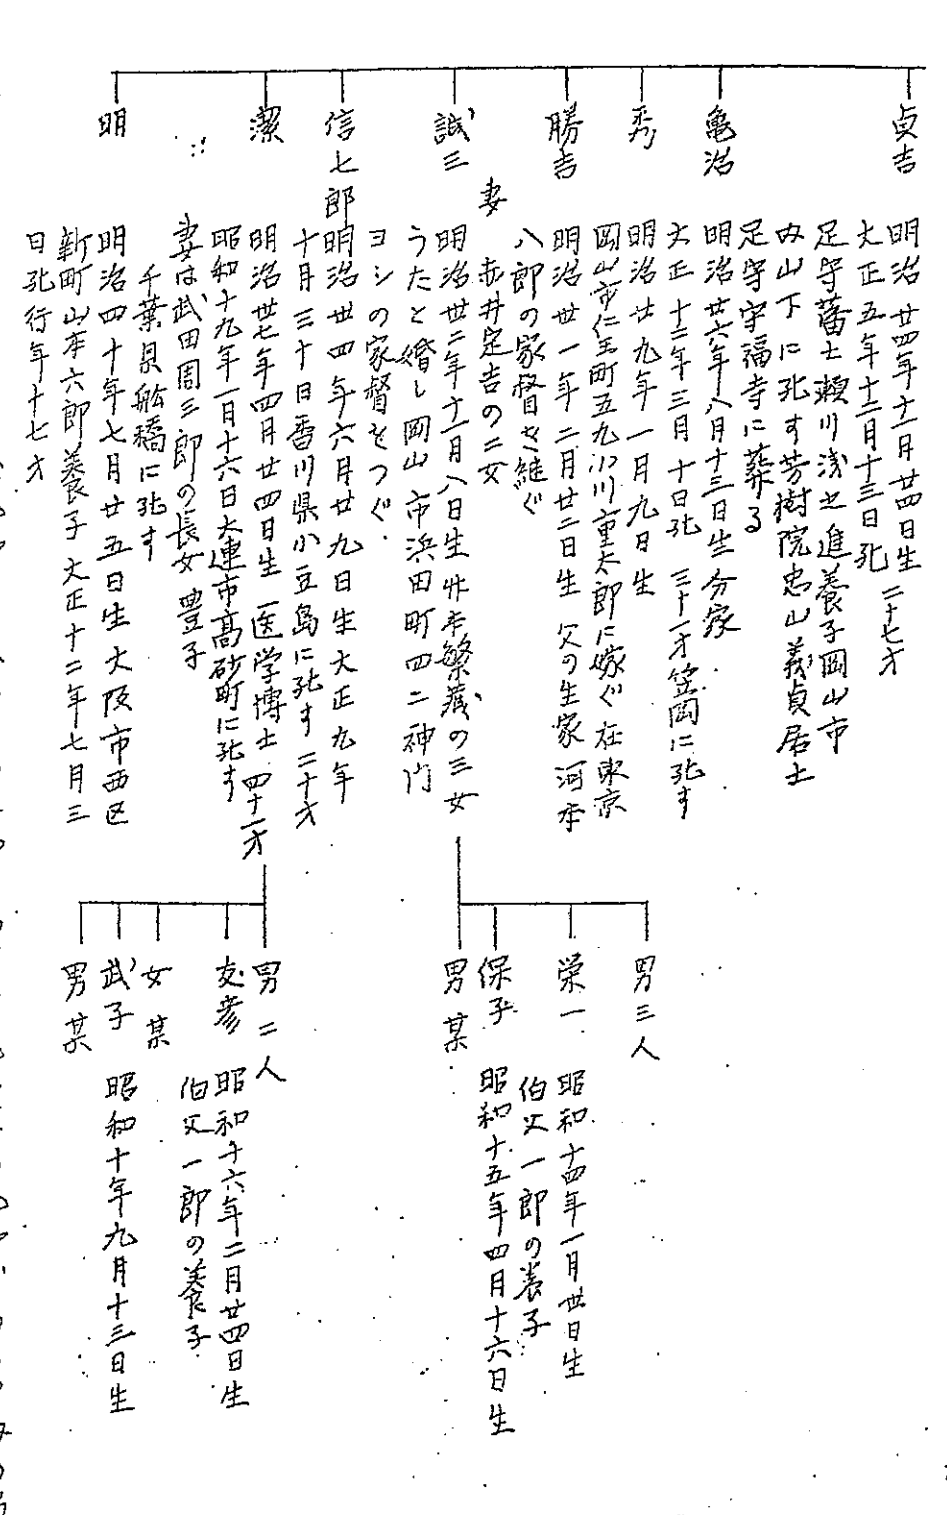 貞吉
明治廿四年十一月廿四日生
大正五年十二月十三日死 二十七才
足守藩士瀬川浅之進養子岡山市
内山下に死す芳樹院忠山義貞居士
足守守福寺に葬る
亀治
明治廿六年八月十三日生 分家
大正十二年三月十日死 三十一才笠岡に死す
秀
明治廿九年一月九日生
岡山市仁王町五九小川重太郎に嫁ぐ 在東京
勝吉
明治丗一年二月廿二日生 父の生家河本
八郎の家督を継ぐ
妻 赤井定吉の二女
誠三
明治丗二年十一月八日生 繁蔵の三女
うたと婚し岡山市浜田町四二神門
ヨシの家督をつぐ.
信七郎
明治丗四年六月廿九日生大正九年
十月三十日香川県小豆島に死す 二十才
潔
明治丗七年四月廿四日生 医学博士 四十一才
昭和十九年一月十六日大連市高砂町に死す
妻は武田周三郎の長女 豊子
千葉県船橋に死す
明
明治四十年七月廿五日生大阪市西区
新町山本六郎養子 大正十二年七月三
日死行年十七才
男三人
栄一 昭和十四年一月丗日生
伯父一郎の養子
保子 昭和十五年四月十六日生
男某
男二人
友彦 昭和十六年二月廿四日生
伯父一郎の養子
女某
武子 昭和十年九月十三日生
男某